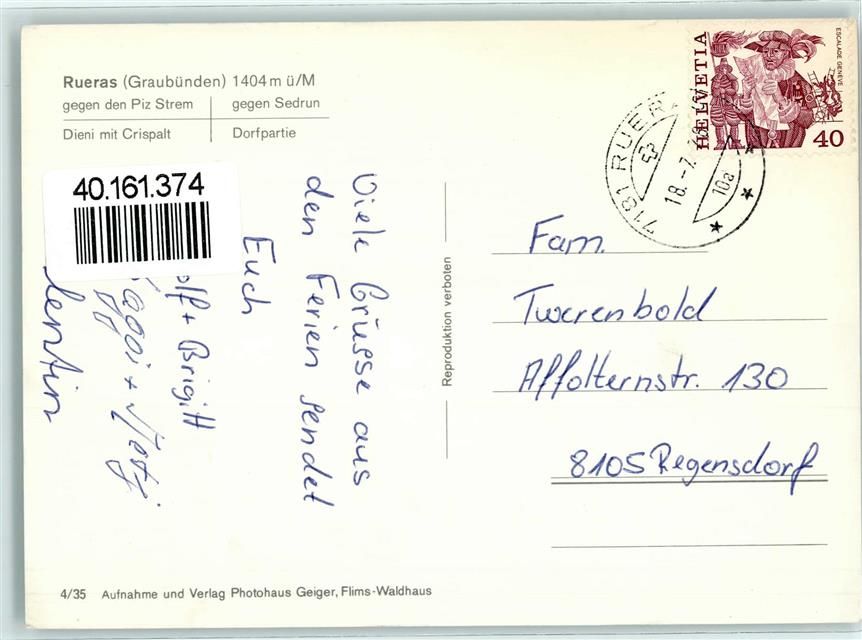 Rueras (Graubünden) 1404 m ü/M
gegen den Piz Strem
gegen Sedrun
Dieni mit Crispalt
Dorfpartie
40.161.374
Viele Grüsse aus
den Ferien sendet
Euch
olf + Brigitt
lentin
Reproduktion verboten
HELVETIA
ESCALADE GENÈVE
40
7181 RUERA
18.-7.
10a
Fam.
Twerenbold
Affolternstr. 130
8105 Regensdorf
4/35 Aufnahme und Verlag Photohaus Geiger, Flims-Waldhaus